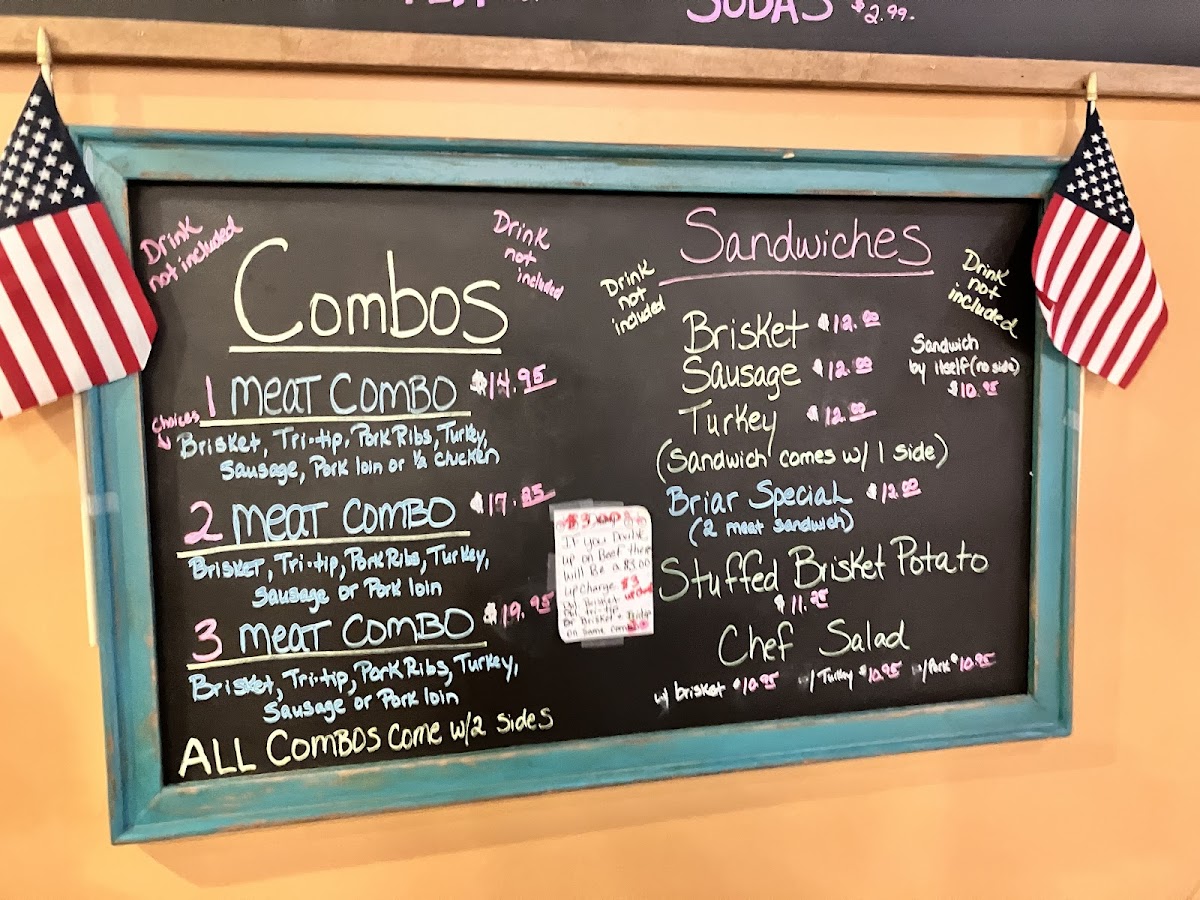 SODAS $2.99.
Drink
not included
Combos
Drink
not
included
1 Meat Combo $14.95
Choices
Brisket, Tri-tip, Pork Ribs, Turkey,
Sausage, Pork loin or 1/2 chicken
2 Meat Combo $17.95
Brisket, Tri-tip, Pork Ribs, Turkey,
Sausage or Pork loin
3 Meat Combo $19.95
Brisket, Tri-tip, Pork Ribs, Turkey,
Sausage or Pork loin
ALL Combos come w/2 sides
$3.00
If you Double
up on Beef there
will Be a $3.00
upcharge $3
Brisket
tri-tip
or Brisket +
on same combo
Sandwiches
Drink
not
included
Drink
not
included
Brisket $12.00
Sausage $12.00
Turkey $12.00
Sandwich
by itself (no side)
$10.95
(Sandwich comes w/ 1 side)
Briar Special $12.00
(2 meat sandwich)
Stuffed Brisket Potato
$11.25
Chef Salad
w/ brisket $10.95 w/ Turkey $10.95 w/ Pork $10.95